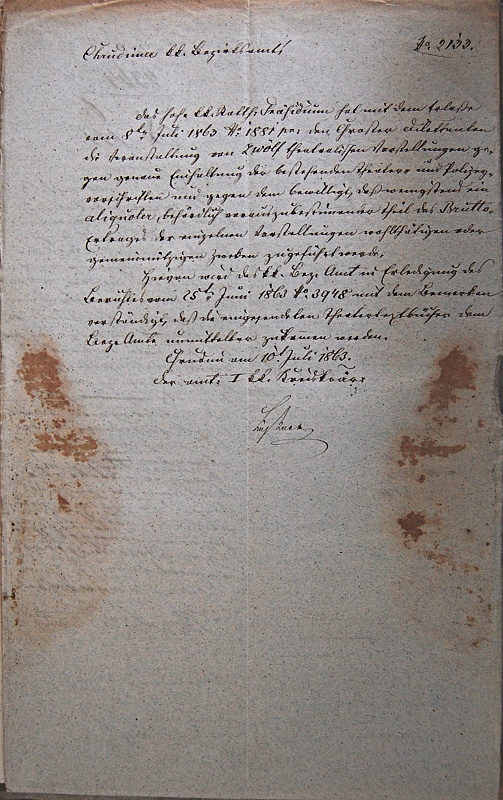 Chrudimer kk. Bezirksamt
No. 2133.
Das hohe kk. Statth. Präsidium hat mit dem Erlaße
vom 8ten Juli 1863 No 1881 pr: den Dilettanten
die Veranstaltung von zwölf theatralischen Vorstellungen ge-
gen genaue Einhaltung der bestehenden Theater und Polizey-
vorschriften und gegen dem bewilligt, daß wenigstens ein
aliquoter, behördlich vorauszubestimmender Theil des Brutto
Ertrages der einzelnen Vorstellungen wohlthätigen oder
gemeinnützigen Zwecken zugeführt werde.
Hievon wird das kk. Bez. Amt in Erledigung des
Berichtes vom 25ten Juni 1863 No 3948 mit dem Bemerken
verständigt, daß die eingesendeten Theatertextbücher dem
Amte unmittelbar zukommen werden.
am 10t Juli 1863.
Der I kk.